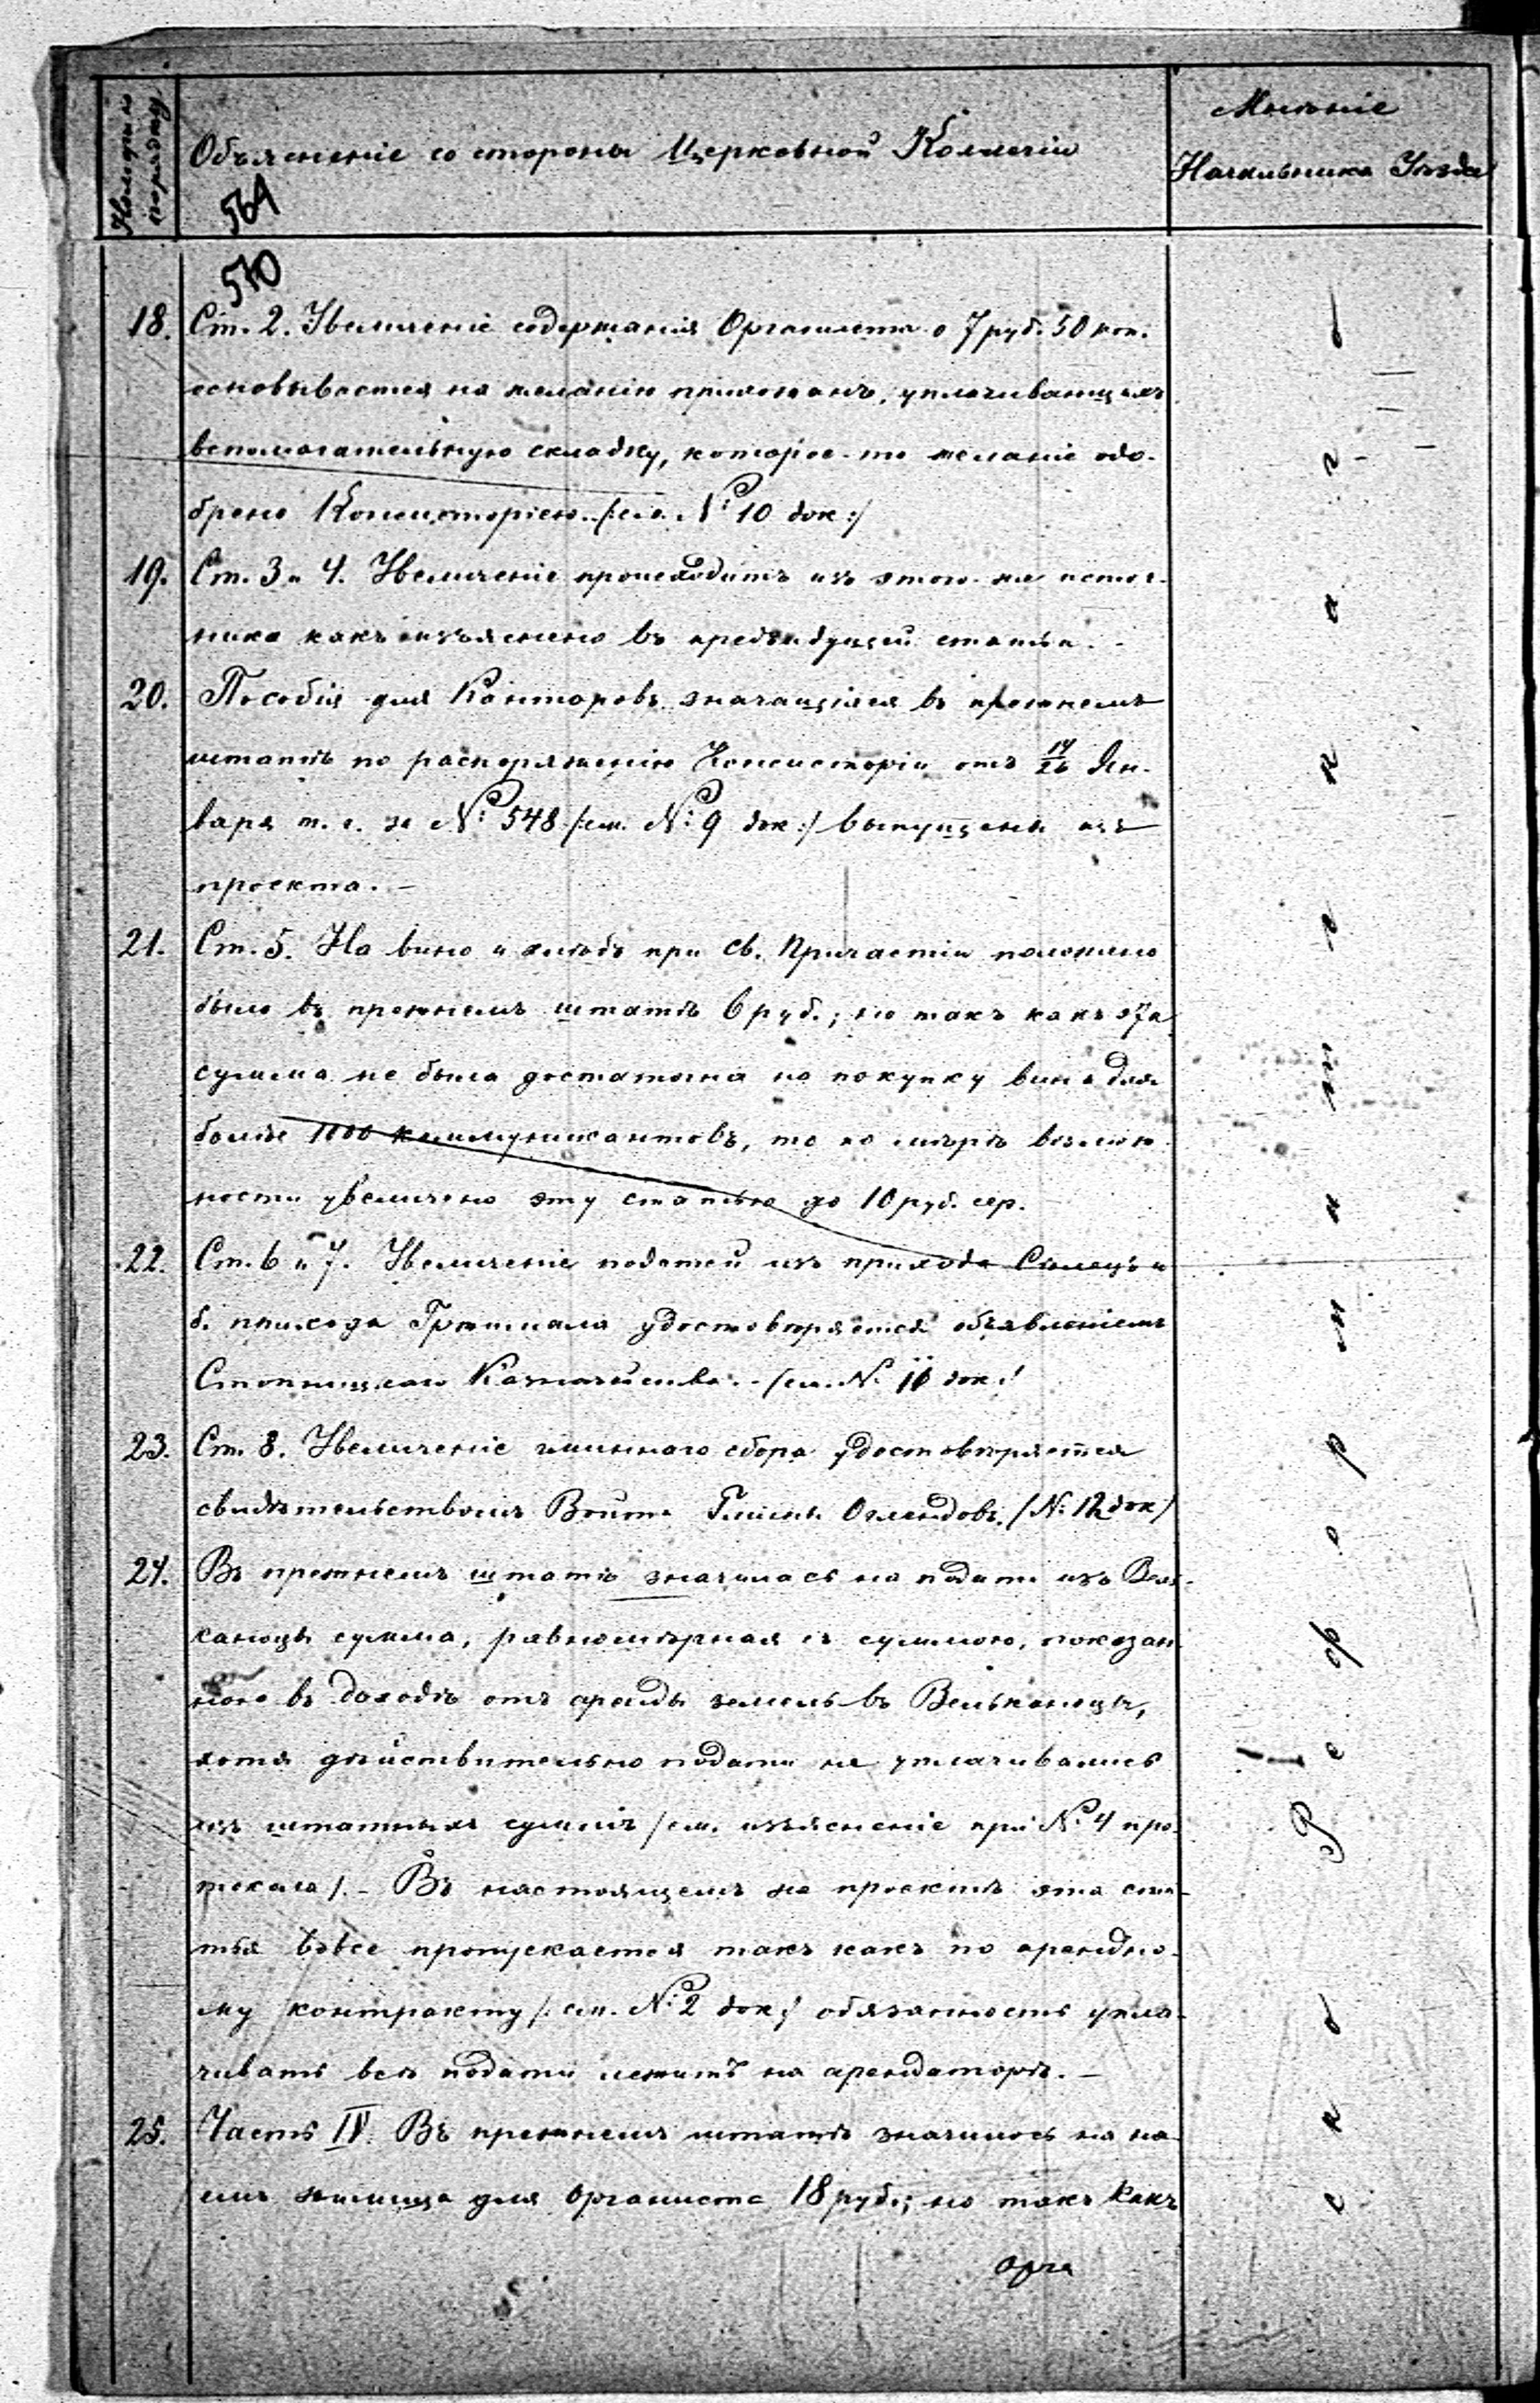 Номеръ по порядку
Объясненіе со стороны Церковной Коллегіи
Мнѣніе
Начальника Уѣзда
564
570
18. Ст. 2. Увеличеніе содержанія Органиста о 7 руб. 50 коп.
основывается на желанію прихожанъ, уплачивающихъ
вспомогательную складку, которое-то желаніе одо-
брено Консисторіею. /: см. № 10 док :/
19. Ст. 3 и 4. Увеличеніе происходитъ изъ этого же источ-
ника какъ изъяснено въ предъидущей статьи. -
20. Пособія для Канторовъ значащіяся въ прежнемъ
штатѣ по распоряженію Консисторіи отъ 14/26 Ян-
варя т. г. за № 548 /: см. № 9 док :/ выпущены изъ
проекта. -
21. Ст. 5. На вино и хлѣбъ при Св. Причастіи положено
было въ прежнемъ штатѣ 6 руб.; но такъ какъ эта
сумма не была достаточна на покупку вина для
болѣе 1000 коммуникантовъ, то по мѣрѣ возмож-
ности увеличено эту статью до 10 руб. сер.
22. Ст. 6 и 7. Увеличеніе податей изъ прихода Сѣлецъ и
б. прихода удостовѣряется объявленіемъ
Стопницкаго Казначейства. - /см. № 11 док./
23. Ст. 8. Увеличеніе гминнаго сбора удостовѣряется
свидѣтельствомъ Войта Гмины Оглендовъ. /№ 12 док/
24. Въ прежнемъ штатѣ значилась на подати изъ Вель-
каноцы сумма, равномѣрная съ суммою, показан-
ною въ доходѣ отъ аренды земель въ Вельканоцы,
хотя дѣйствительно подати не уплачивались
изъ штатныхъ суммъ /см. изъясненіе при № 4 про-
токола/. - Въ настоящемъ же проектѣ эта ста-
тья вовсе пропускается такъ какъ по арендно-
му контракту /: см. № 2 док :/ обязанность упла-
чивать всѣ подати лежитъ на арендаторѣ. -
25. Часть IV. Въ прежнемъ штатѣ значилось на на-
емъ жилища для Органиста 18 руб.; но такъ какъ
орга